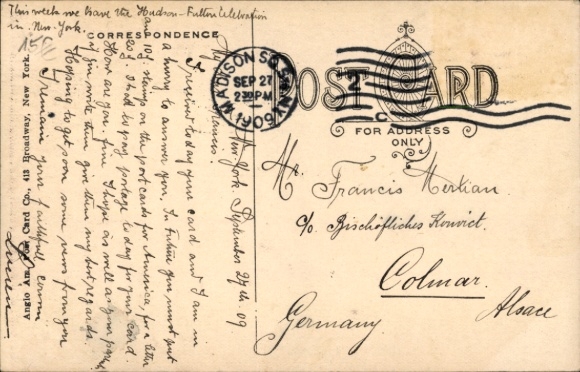 This week we have the Hudson-Fulton Celebration
in New-York.
155
CORRESPONDENCE
New-York September 27th 09
My Francis.
I received to day your card and I am in
a hurry to answer you. In future you must put
and 10 d. stamps on the post cards for America, for a letter
20 d. I had to pay postage to day for your card.
How are you. fine I hope as well as your
if you write them give them my best regards.
Hoping to get soon some news from you
I remain your faithfull cousin
Lucien
Anglo Am. Post Card Co., 413 Broadway, New York.
MADISON SQ. STA. N.Y.
SEP 27
230 PM
1909
2
C
POST CARD
FOR ADDRESS
ONLY
Mr. Francis Mertian
c/o Bischöfliches Konvict.
Colmar.
Alsace
Germany